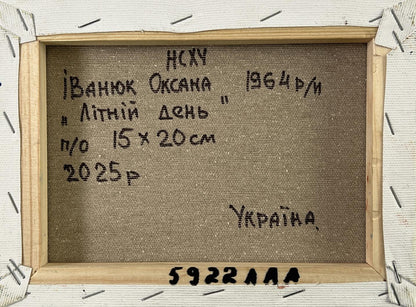 НСХУ
Іванюк Оксана 1964 р/н
„Літній день"
п/о 15 х 20 см
2025 р
Україна
5922ЛЛЛ